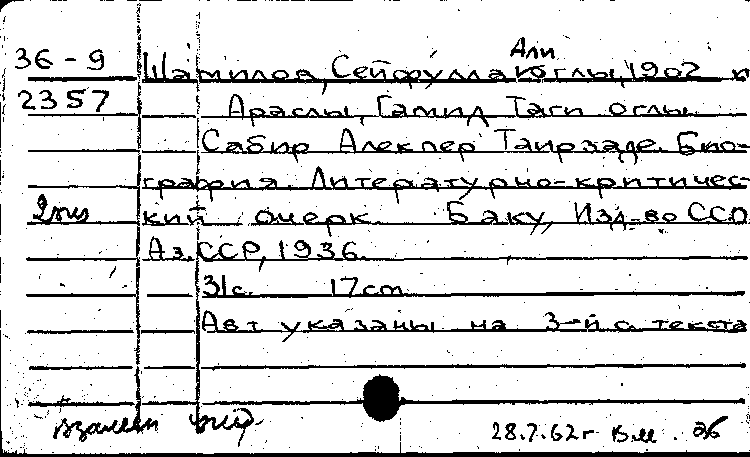 36-9 Шамилов, Сейфулла Али оглы, 1902 и
2357 Араслы, Гамид Таги оглы.
Сабир Алекпер Таирзаде. Био-
графия. Литературно-критичес-
2экз кий очерк. Баку, Изд-во ССП
Аз.ССР, 1936.
31с. 17cm
Авт указаны на 3-й с. текста
взамен
28.7.62г